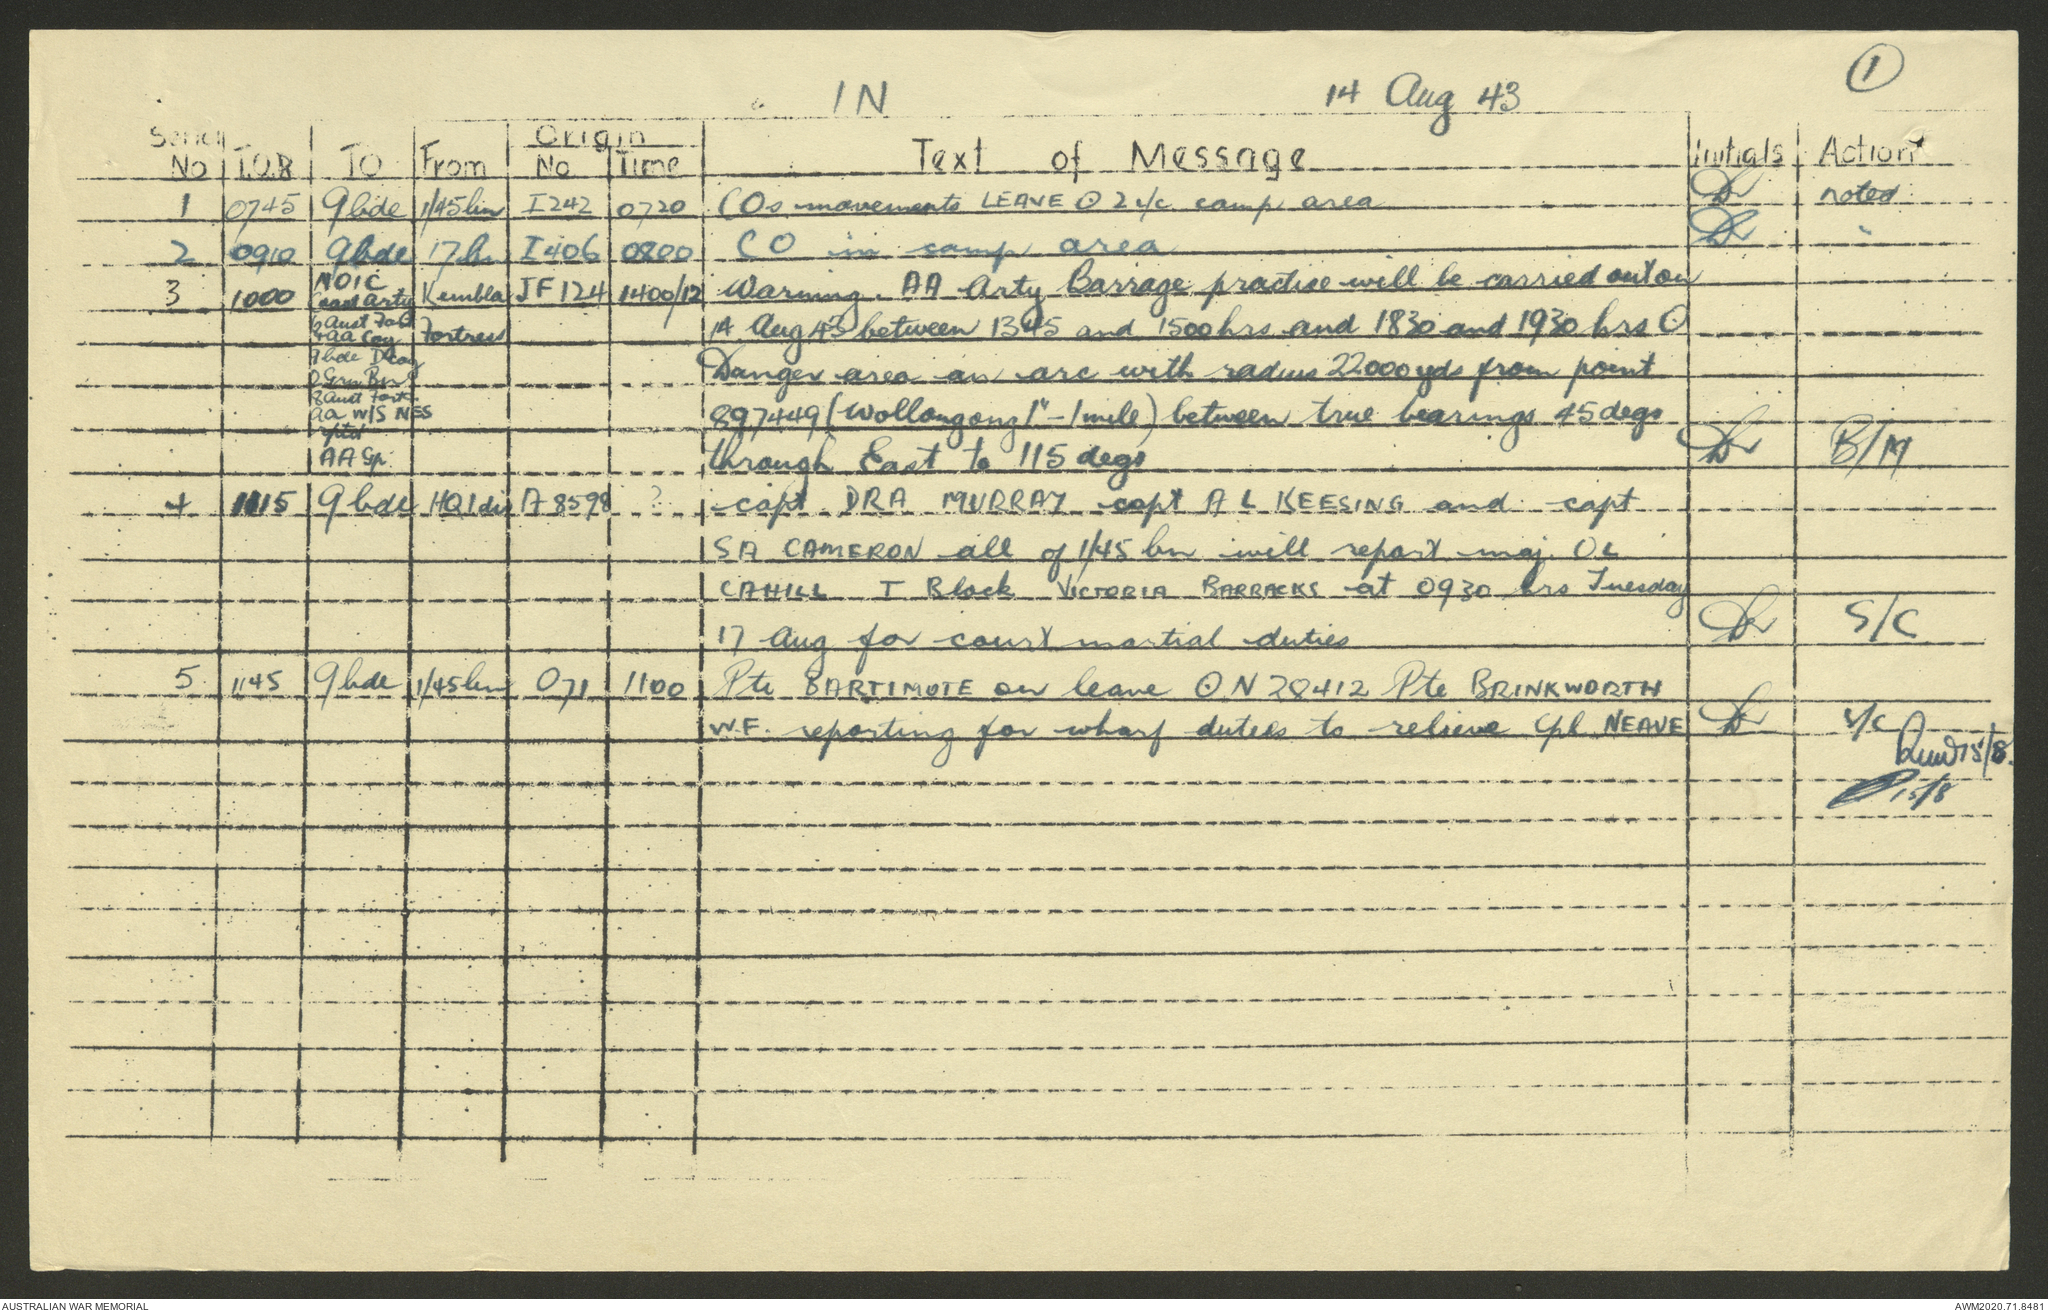 1
IN 14 Aug 43
Serial No T.O.R TO From Origin No Time Text of Message Initials Action
1 0745 9 bde 1/45 bn I242 0720 COs movements LEAVE O 2 i/c camp area noted
2 0910 9 bde 17 bn I406 0800 CO in camp area "
3 1000 NOIC Kembla JF124 1400/12 Warning. AA Arty Barrage practise will be carried out on
Coast Arty
Aust Fort Fortress 14 Aug 43 between 1345 and 1500 hrs and 1830 and 1930 hrs O
AA Coy
9 bde D Coy Danger area an arc with radius 22000 yds from point
Grn Bn
8 Aust Fort
AA W/S NES 897449 (Wollongong 1" - 1 mile) between true bearings 45 degs
rptd
AA Gp. through East to 115 degs B/M
4 1115 9 bde HQ 1 div A8598 ? capt DRA MURRAY capt A L KEESING and capt
SA CAMERON all of 1/45 bn will report maj. OL
CAHILL I Block VICTORIA BARRACKS at 0930 hrs Tuesday
17 Aug for court martial duties S/C
5 1145 9 bde 1/45 bn 071 1100 Pte BARTIMOTE on leave O N28412 Pte BRINKWORTH
W.F. reporting for wharf duties to relieve Cpl NEAVE S/C
15/8.
15/8
AUSTRALIAN WAR MEMORIAL AWM2020.71.8481